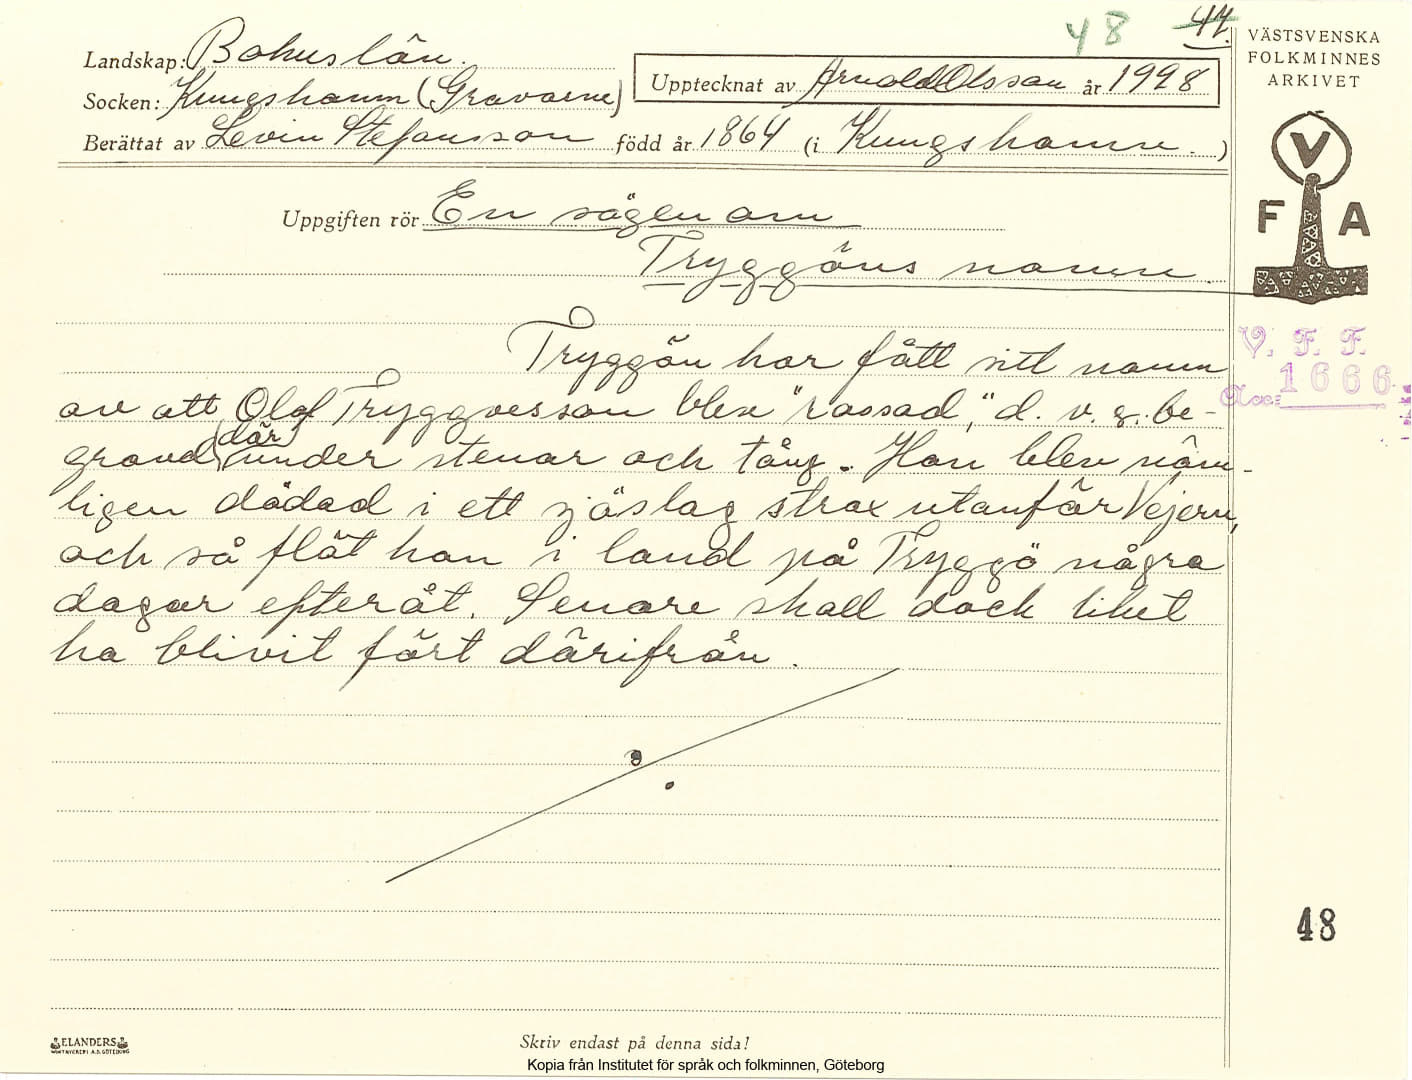 48 44.
Landskap: Bohuslän.
Socken: Kungshamn (Gravarne)
Upptecknat av Arnold Olsson år 1928
Berättat av Levin Stefansson född år 1864 (i Kungshamn.)
Uppgiften rör En sägen om
Tryggöns namn.
Tryggön har fått sitt namn
av att Olof Tryggvesson blev "rassad," d. v. s. be-
gravd (där) under stenar och tång. Han blev näm-
ligen dödad i ett sjöslag strax utanför Vejern,
och så flöt han i land på Tryggö några
dagar efteråt. Senare skall dock liket
ha blivit fört därifrån.
VÄSTSVENSKA
FOLKMINNES
ARKIVET
V
F A
V. F. F.
Acc: 1666
48
ELANDERS
Skriv endast på denna sida!
Kopia från Institutet för språk och folkminnen, Göteborg